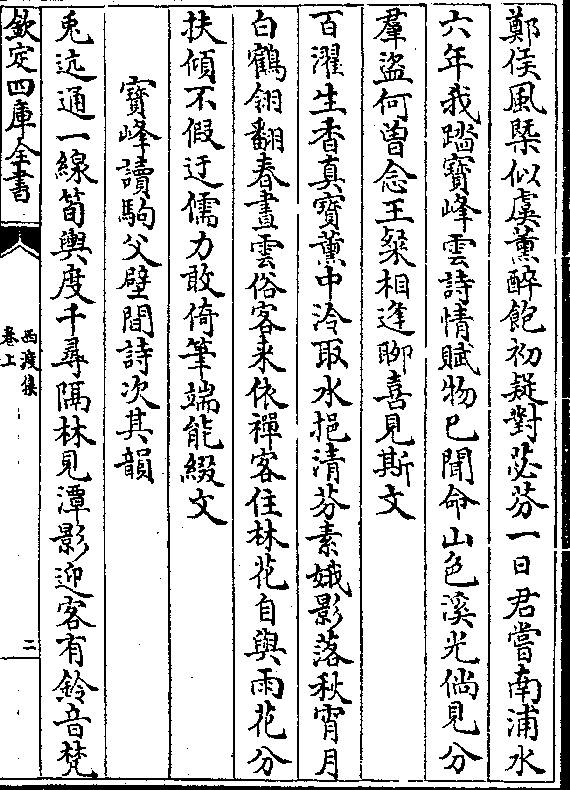 鄭侯風槩似虞薫醉飽初疑對苾芬一日君嘗南浦水
六年我踏寳峰雲詩情賦物已聞命山色溪光倘見分
羣盗何曽念王粲相逢聊喜見斯文
百濯生香真寳薫中泠取水挹清芬素娥影落秋宵月
白鶴翎翻春晝雲俗客来依禪客住林花自與雨花分
扶傾不假迂儒力敢倚筆端能綴文
寳峰讀駒父壁間詩次其韻
兎迒通一線筍輿度千尋隔林見潭影迎客有鈴音梵
欽定四庫全書
西渡集
卷上
二